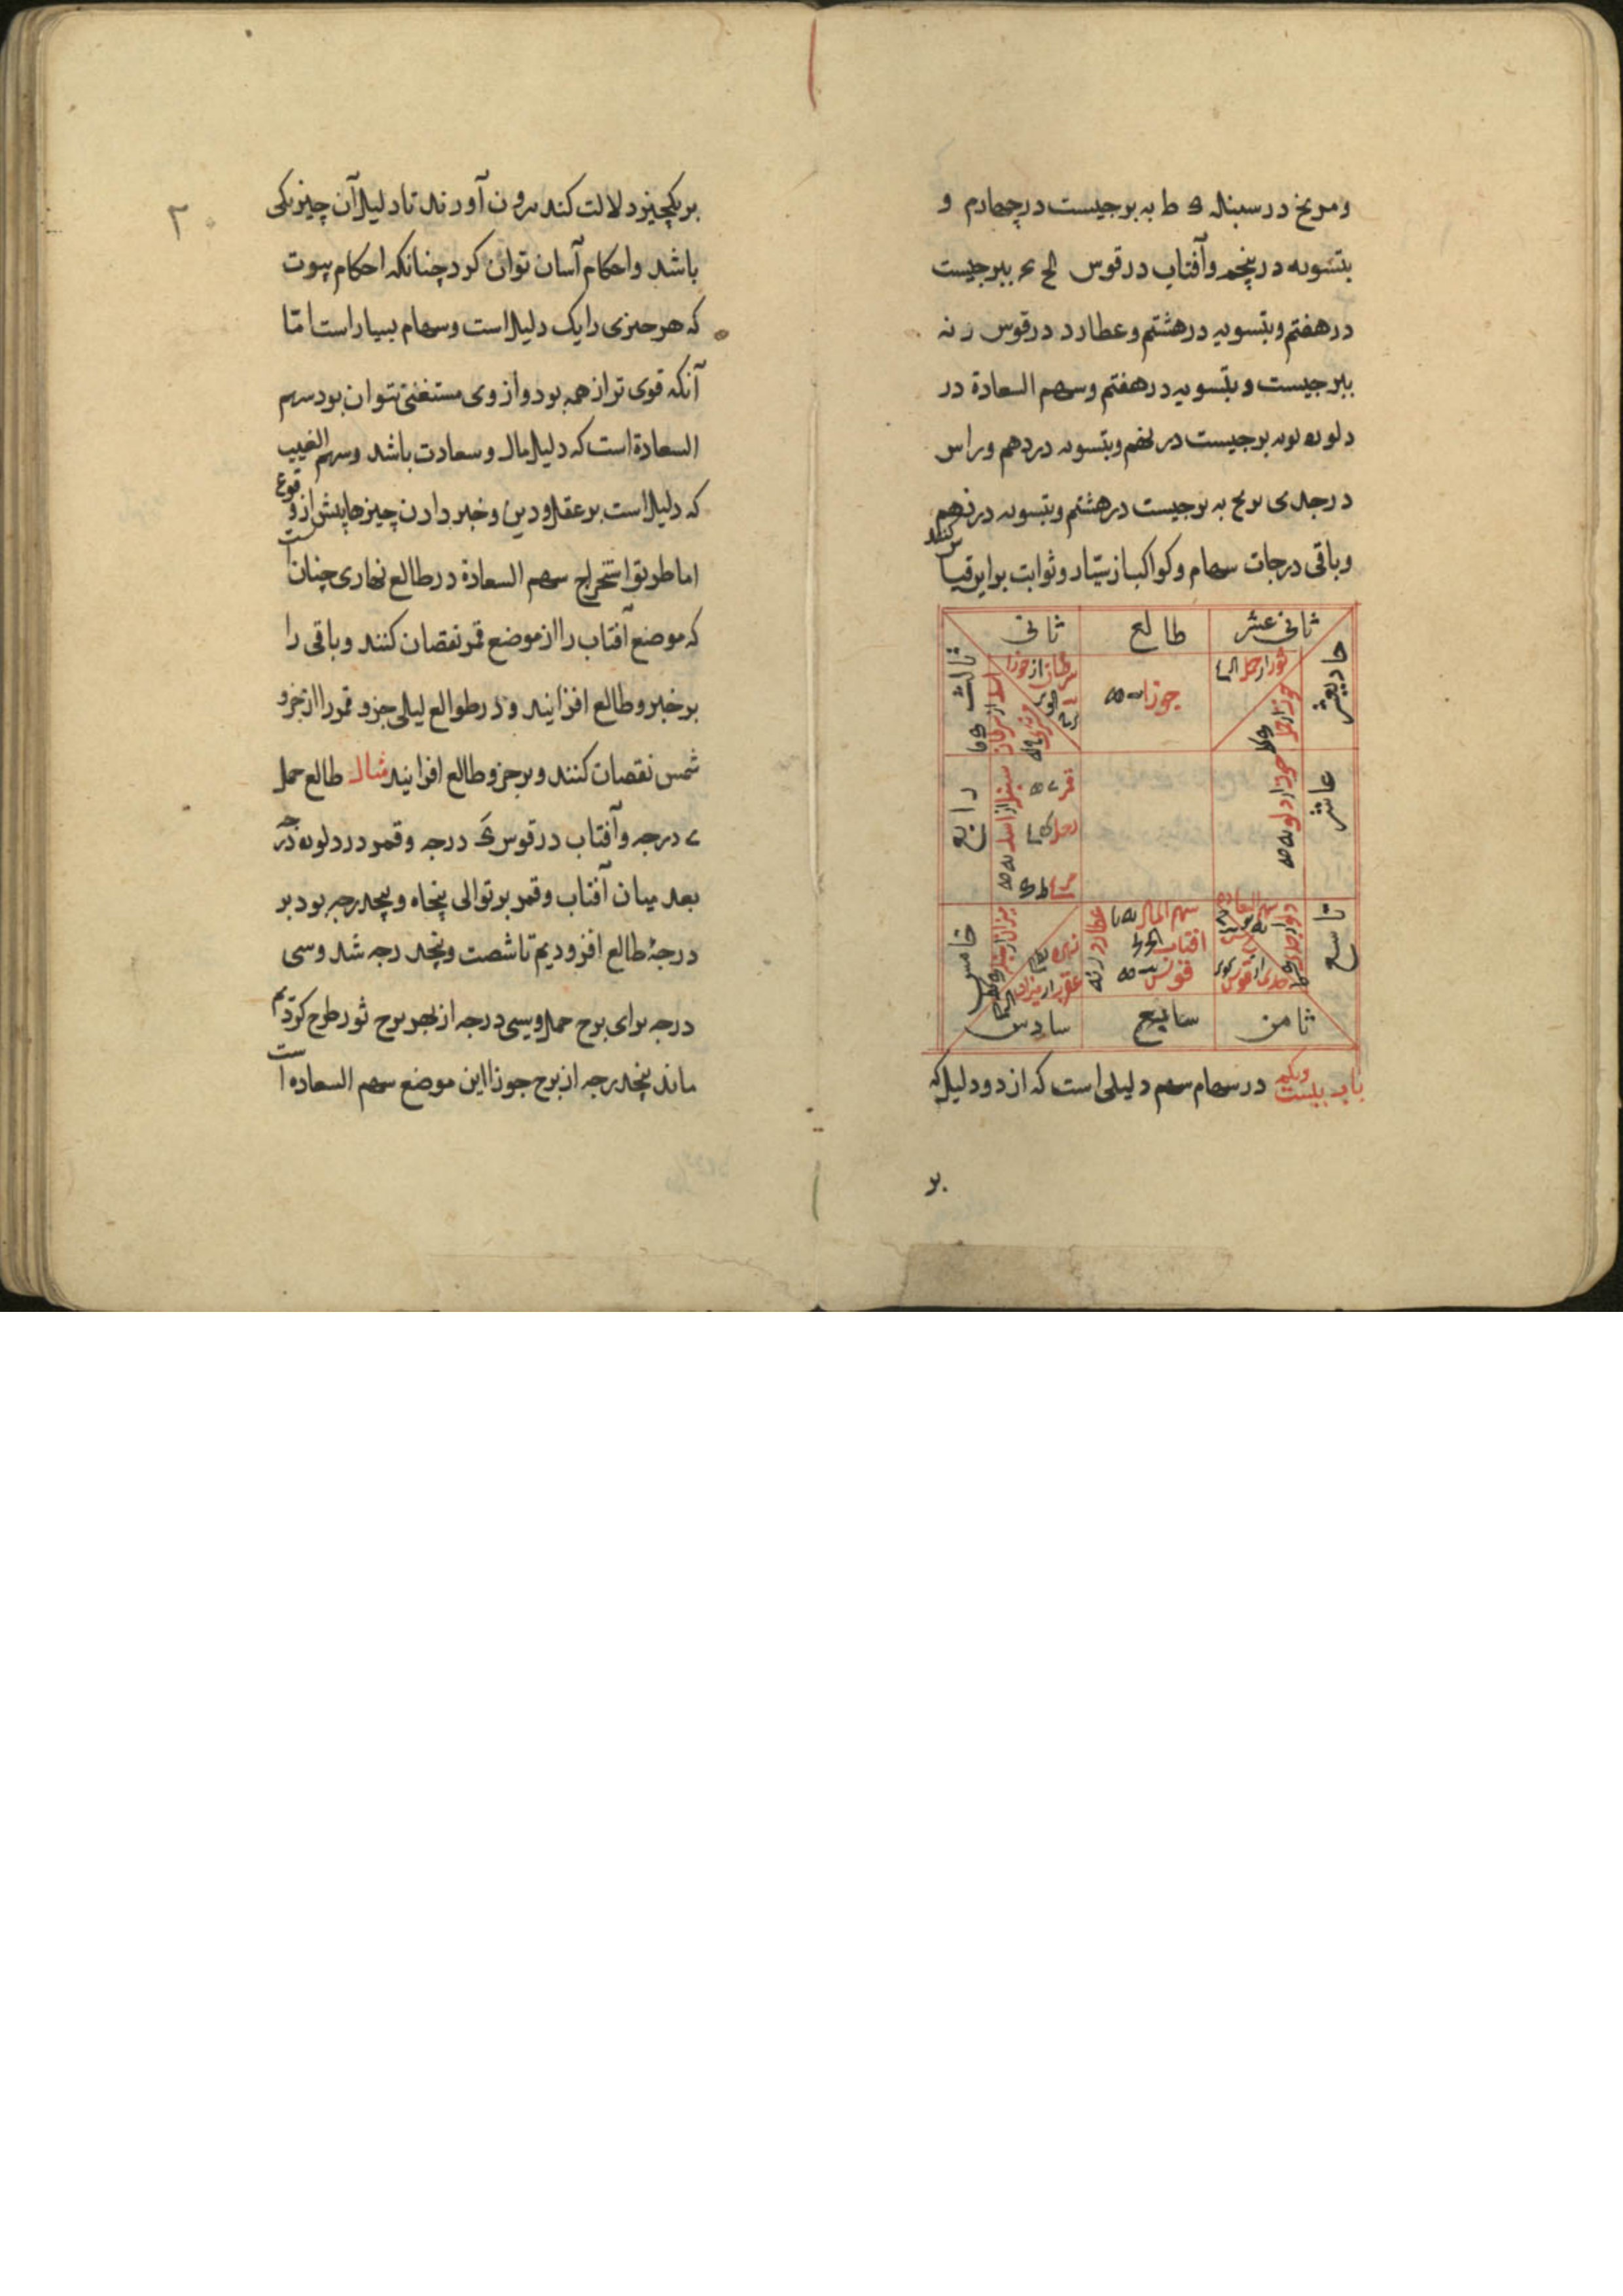 ومریخ در سنبله ۵ ط به برجیست در چهارم و
بتسویه در پنجم و آفتاب در قوس لح ببرجیست
در هفتم و بتسویه در هشتم و عطارد در قوس ر نه
ببرجیست و بتسویه در هفتم و سهم السعادة در
دلو به برجیست در نهم و بتسویه در دهم و راس
در جدی به برجیست در هشتم و بتسویه در نهم
و باقی درجات سهام و کواکب از سیّار و ثوابت براین قیاس کنند
ثانی عشر
طالع
ثانی
حادیعشر
ثور از حمل
جوزا
سرطان از جوزا
ثالث
عاشر
حوت از دلو
قمر
زحل
سنبله از اسد
رابع
تاسع
سهم السعاده
دلو از جدی
جدی از قوس
سهم المال
آفتاب
قوس
عطارد
زهره
عقرب از میزان
میزان از سنبله
خامس
ثامن
سابع
سادس
باب بیست ویکم در سهام سهم دلیلی است که از دو دلیل که
بر
۲۰
بر یکچیز دلالت کند برون آورند تا دلیل آن چیز یکی
باشد و احکام آسان توان کرد چنانکه احکام بیوت
که هر چیزی را یک دلیل است و سهام بسیار است امّا
آنکه قوی تر از همه بود و از وی مستغنی نتوان بود سهم
السعادة است که دلیل مال و سعادت باشد و سهم الغیب
که دلیل است بر عقل و دین و خبر دادن چیزها پیش از وقوع
اما طریق استخراج سهم السعادة در طالع نهاری چنان است
که موضع آفتاب را از موضع قمر نقصان کنند و باقی را
بر جزو طالع افزایند و در طوالع لیلی جزو قمر را از جزو
شمس نقصان کنند و بر جزو طالع افزایند مثال طالع حمل
ی درجه و آفتاب در قوس ک درجه و قمر در دلو یه درجه
بعد میان آفتاب و قمر بر توالی پنجاه و پنجدرجه بود بر
درجهٔ طالع افزودیم تا شصت و پنجدرجه شد و سی
درجه برای برج حمل و سی درجه از بهر برج ثور طرح کردیم
ماند پنجدرجه از برج جوزا این موضع سهم السعاده است